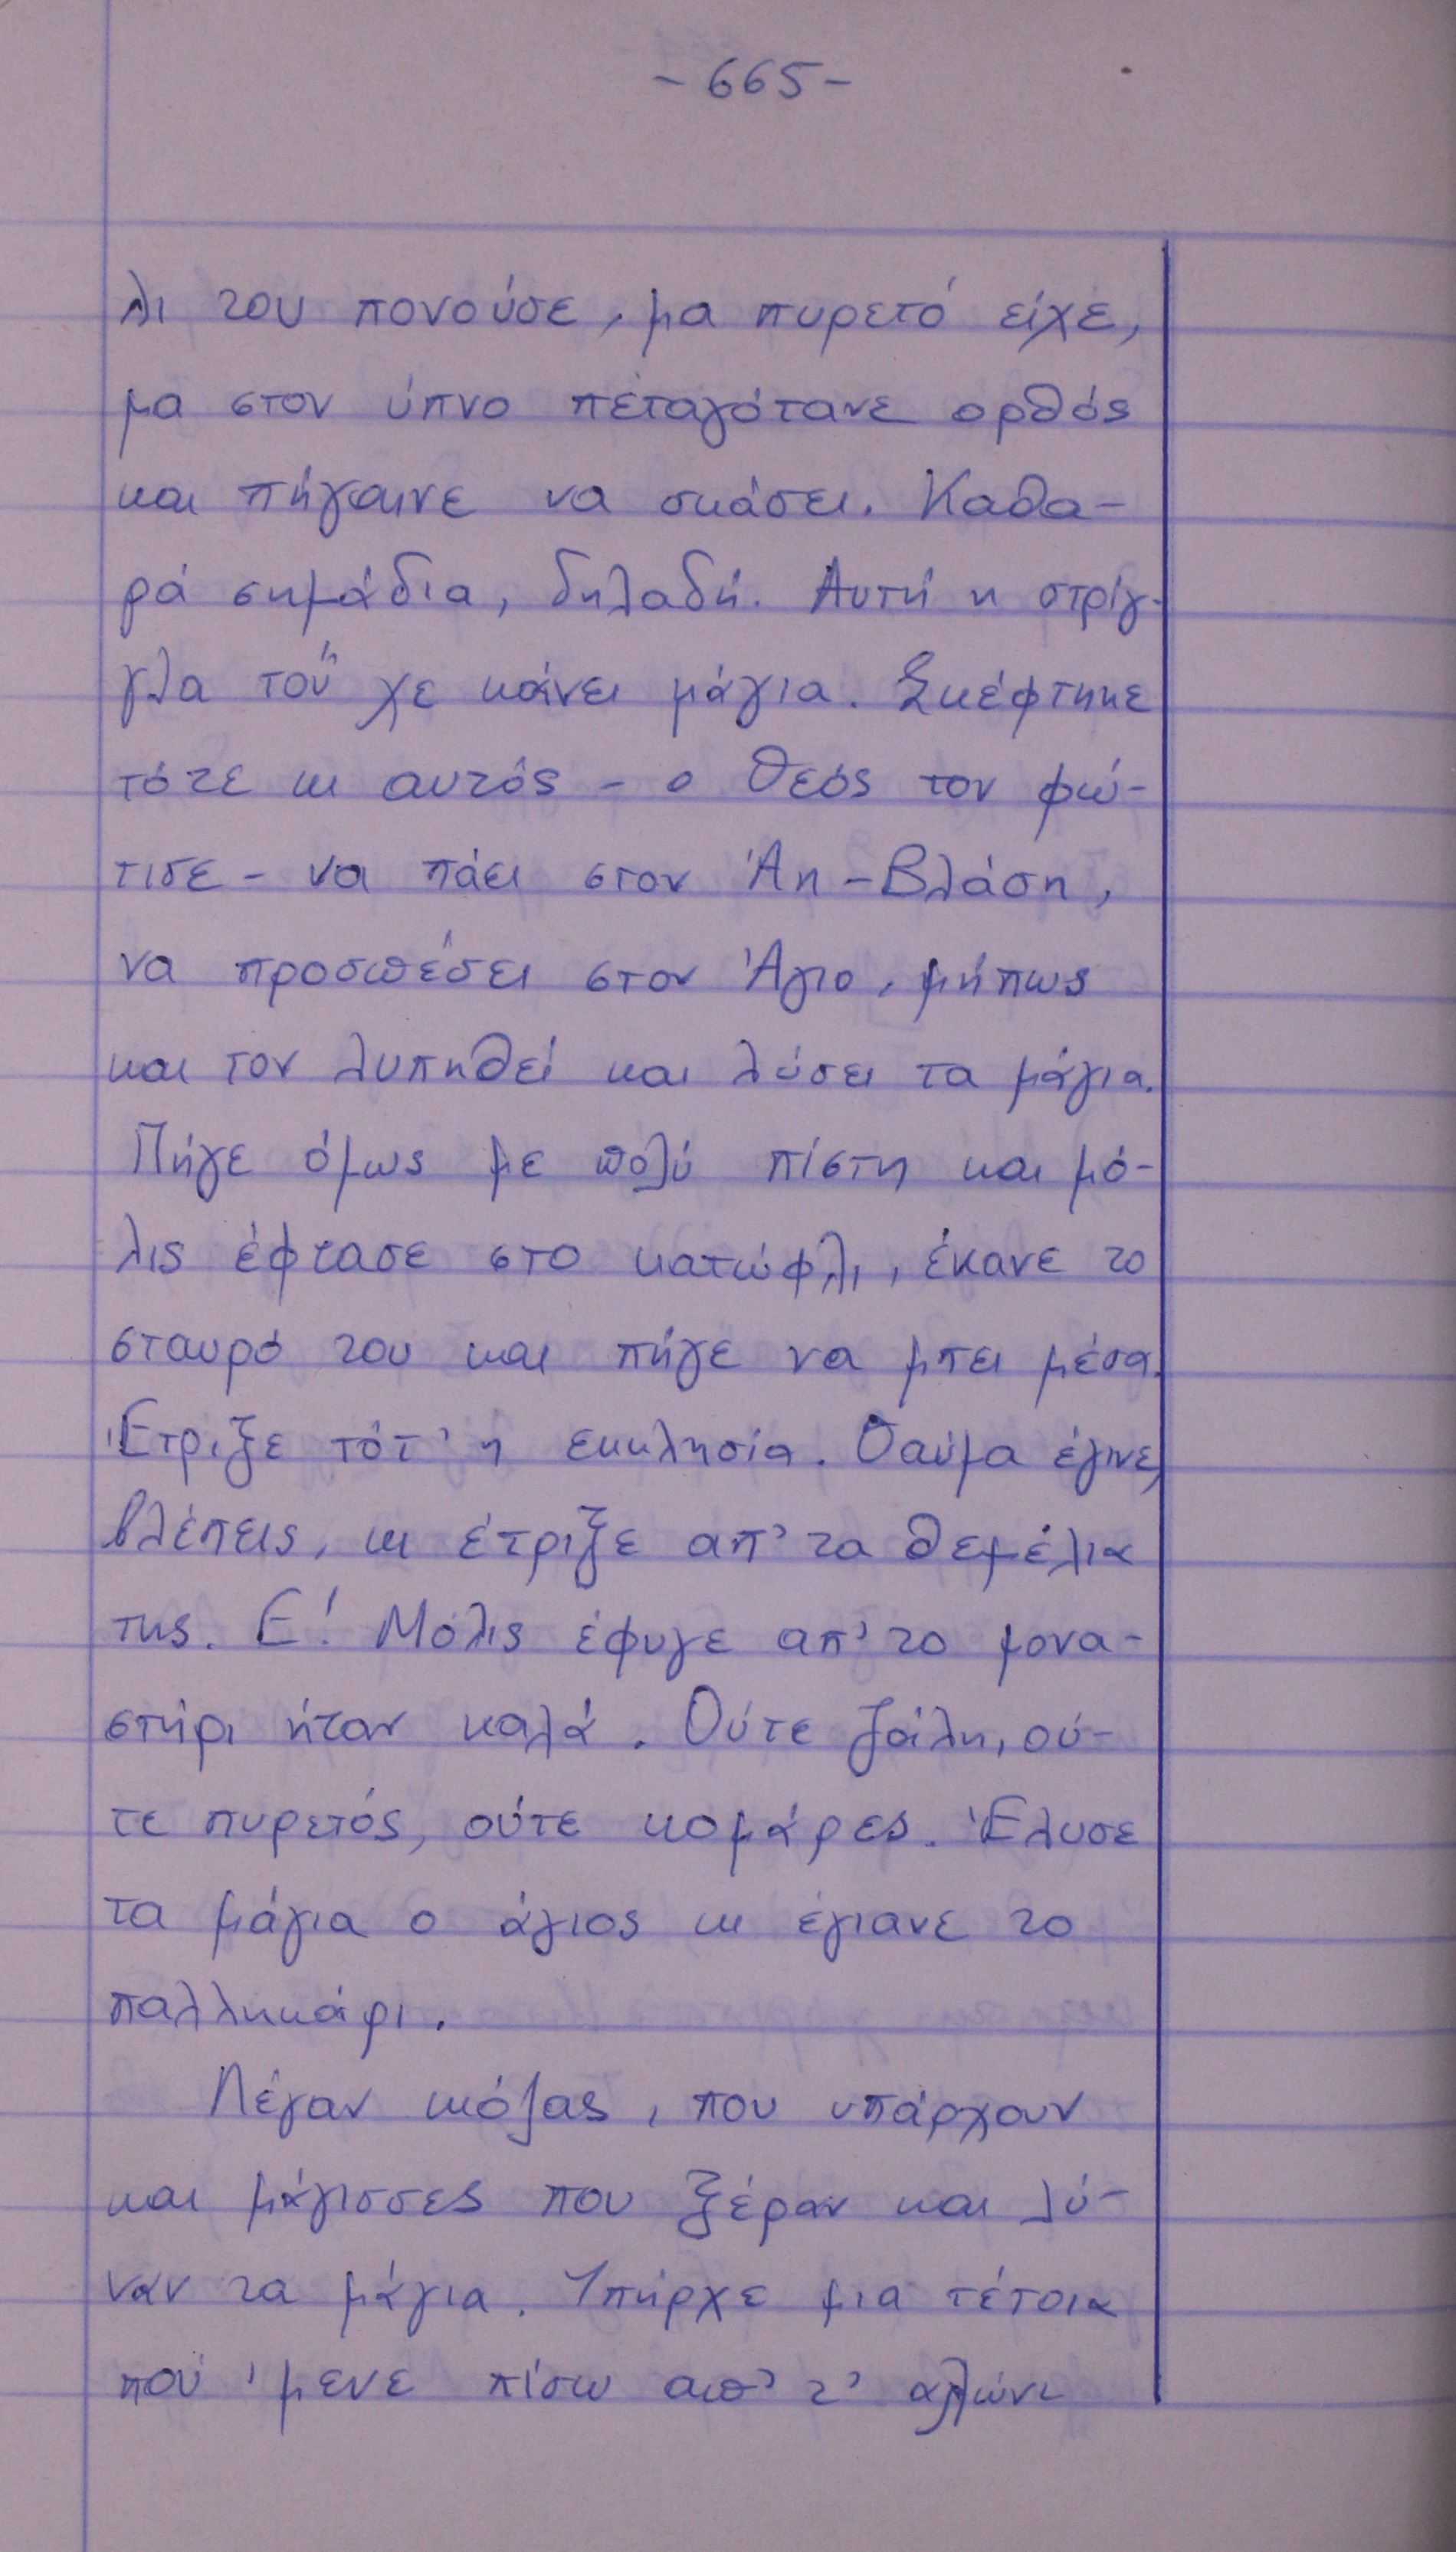 -665-
λι του πονούσε, μα πυρετό είχε,
μα στον ύπνο πεταγότανε ορθός
και πήγαινε να σκάσει. Καθα-
ρά σημάδια, δηλαδή. Αυτή η στρίγ-
γλα τού 'χε κάνει μάγια. Σκέφτηκε
τότε κι αυτός - ο Θεός τον φώ-
τισε - να πάει στον Άη-Βλάση,
να προσπέσει στον Άγιο, μήπως
και τον λυπηθεί και λύσει τα μάγια.
Πήγε όμως με πολύ πίστη και μό-
λις έφτασε στο κατώφλι, έκανε το
σταυρό του και πήγε να μπει μέσα.
Έτριξε τότ' η εκκλησία. Θαύμα έγινε,
βλέπεις, κι έτριξε απ' τα θεμέλια
της. Ε! Μόλις έφυγε απ' το μονα-
στήρι ήταν καλά. Ούτε ζάλη, ού-
τε πυρετός, ούτε κομάρες. Έλυσε
τα μάγια ο άγιος κι έγιανε το
παλληκάρι.
Λέγαν κιόλας, που υπάρχουν
και μάγισσες που ξέραν και λύ-
ναν τα μάγια. Υπήρχε μια τέτοια
πού 'μενε πίσω απ' τ' αλώνι